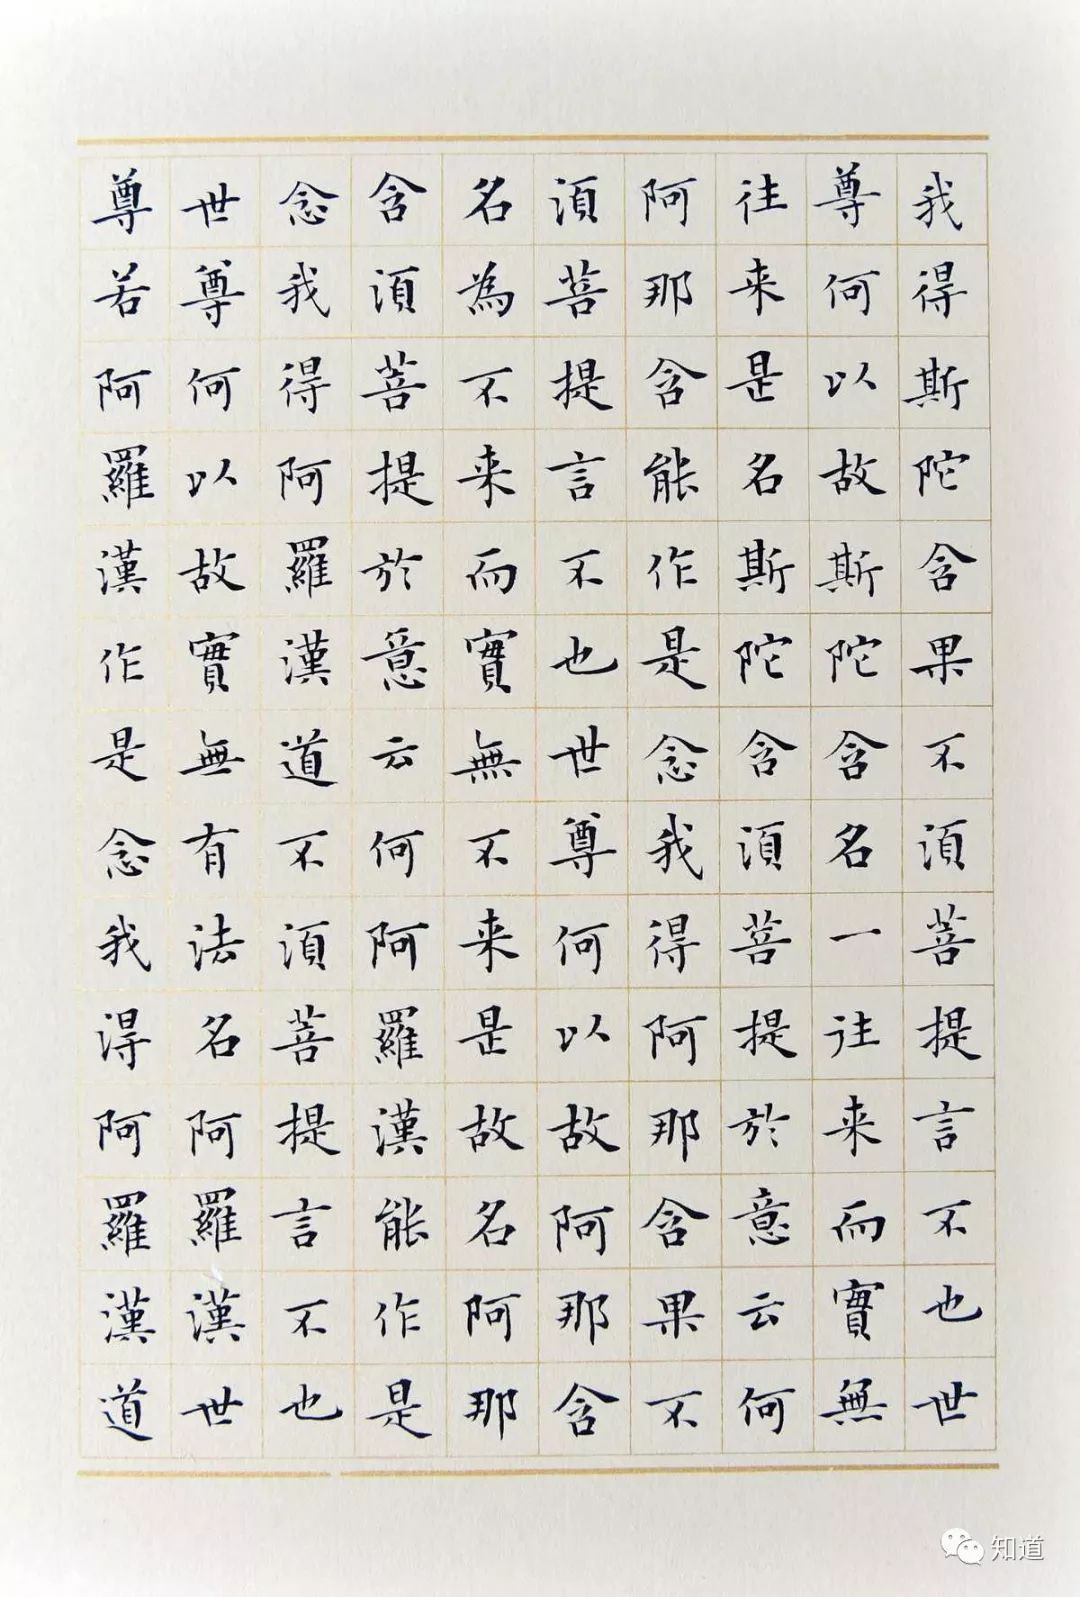 我得斯陀含果不須菩提言不也世
尊何以故斯陀含名一往来而實無
往来是名斯陀含須菩提於意云何
阿那含能作是念我得阿那含果不
須菩提言不也世尊何以故阿那含
名為不来而實無不来是故名阿那
含須菩提於意云何阿羅漢能作是
念我得阿羅漢道不須菩提言不也
世尊何以故實無有法名阿羅漢世
尊若阿羅漢作是念我得阿羅漢道
知道